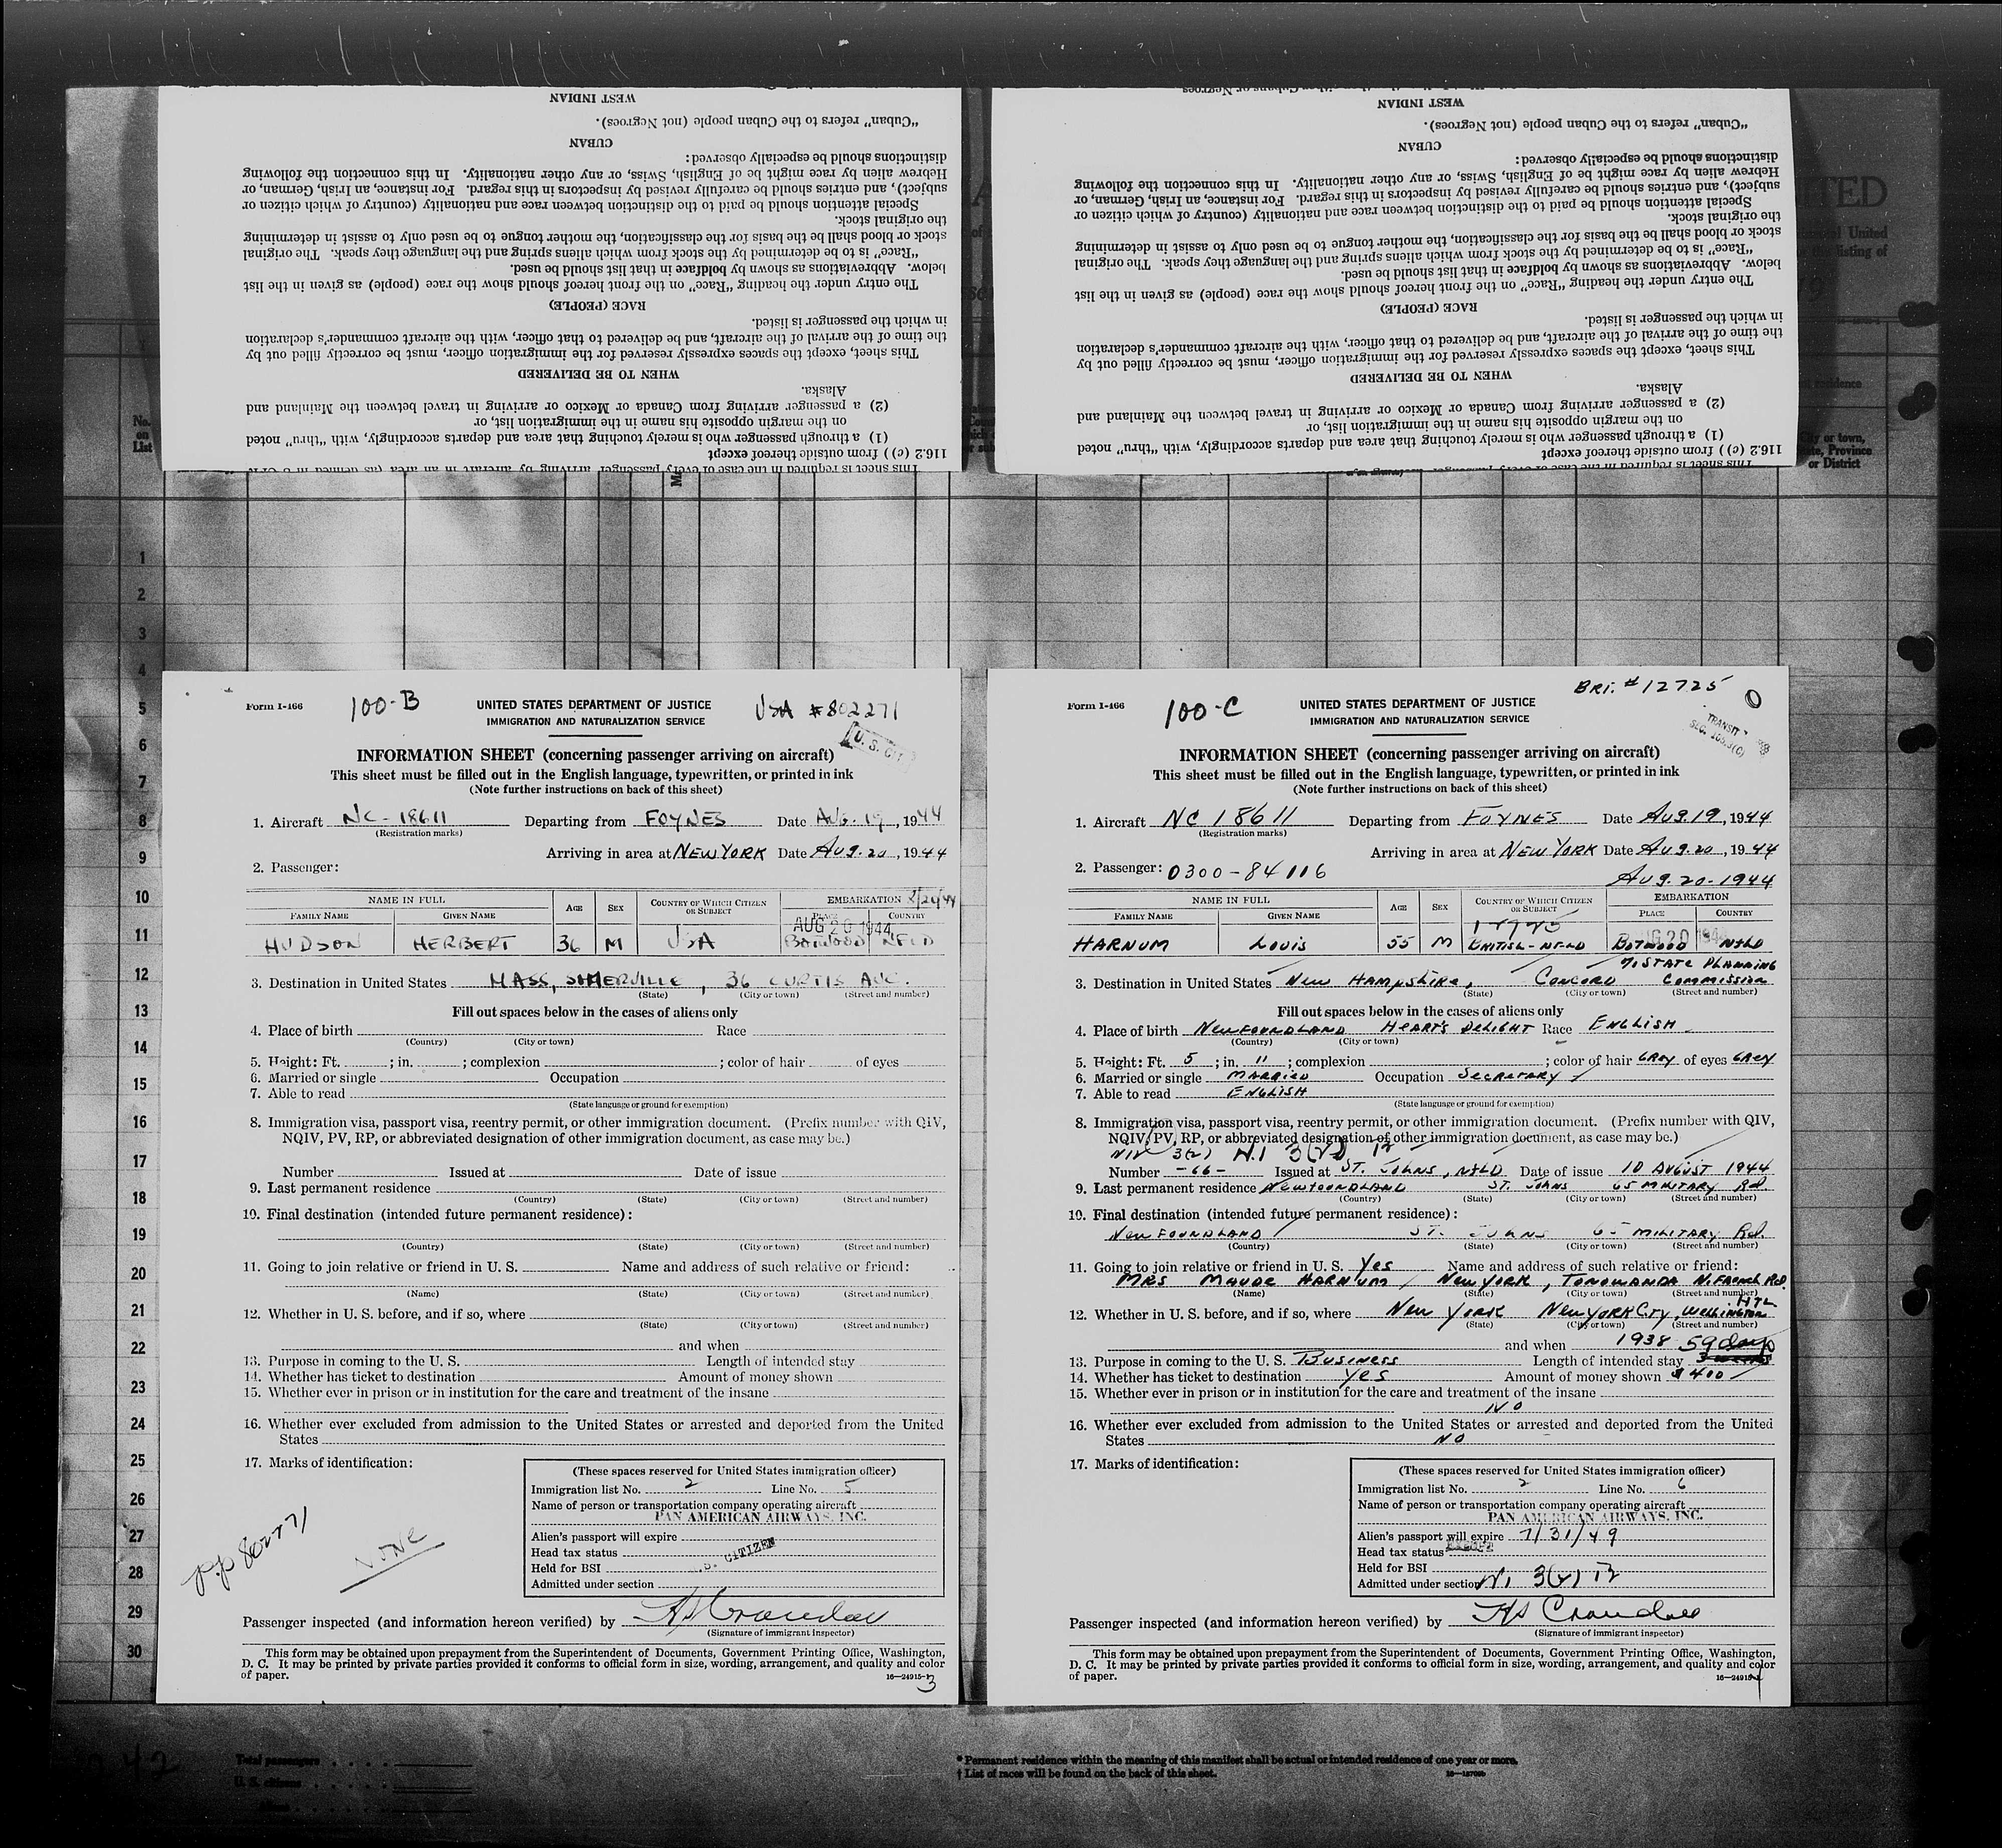 WEST INDIAN
"Cuban" refers to the Cuban people (not Negroes).
CUBAN
distinctions should be especially observed:
Hebrew alien by race might be of English, Swiss, or any other nationality. In this connection the following
subject), and entries should be carefully revised by inspectors in this regard. For instance, an Irish, German, or
Special attention should be paid to the distinction between race and nationality (country of which citizen or
the original stock.
stock or blood shall be the basis for the classification, the mother tongue to be used only to assist in determining
"Race" is to be determined by the stock from which aliens spring and the language they speak. The original
below. Abbreviations as shown by boldface in that list should be used.
The entry under the heading "Race" on the front hereof should show the race (people) as given in the list
RACE (PEOPLE)
in which the passenger is listed.
the time of the arrival of the aircraft, and be delivered to that officer, with the aircraft commander's declaration
This sheet, except the spaces expressly reserved for the immigration officer, must be correctly filled out by
WHEN TO BE DELIVERED
Alaska.
(2) a passenger arriving from Canada or Mexico or arriving in travel between the Mainland and
on the margin opposite his name in the immigration list, or
(1) a through passenger who is merely touching that area and departs accordingly, with "thru" noted
116.2 (c)) from outside thereof except
This sheet is required in the case of every passenger arriving by aircraft in an area (as defined in
WEST INDIAN
"Cuban" refers to the Cuban people (not Negroes).
CUBAN
distinctions should be especially observed:
Hebrew alien by race might be of English, Swiss, or any other nationality. In this connection the following
subject), and entries should be carefully revised by inspectors in this regard. For instance, an Irish, German, or
Special attention should be paid to the distinction between race and nationality (country of which citizen or
the original stock.
stock or blood shall be the basis for the classification, the mother tongue to be used only to assist in determining
"Race" is to be determined by the stock from which aliens spring and the language they speak. The original
below. Abbreviations as shown by boldface in that list should be used.
The entry under the heading "Race" on the front hereof should show the race (people) as given in the list
RACE (PEOPLE)
in which the passenger is listed.
the time of the arrival of the aircraft, and be delivered to that officer, with the aircraft commander's declaration
This sheet, except the spaces expressly reserved for the immigration officer, must be correctly filled out by
WHEN TO BE DELIVERED
Alaska.
(2) a passenger arriving from Canada or Mexico or arriving in travel between the Mainland and
on the margin opposite his name in the immigration list, or
(1) a through passenger who is merely touching that area and departs accordingly, with "thru" noted
116.2 (c)) from outside thereof except
This sheet is required in the case of every passenger
ITED
United
listing of
residence
City or town,
State, Province
or District
No.
on
List
1
2
3
4
5
6
7
8
9
10
11
12
13
14
15
16
17
18
19
20
21
22
23
24
25
26
27
28
29
30
Form I-466 100-B UNITED STATES DEPARTMENT OF JUSTICE USA #802271
IMMIGRATION AND NATURALIZATION SERVICE
U. S. CIT
INFORMATION SHEET (concerning passenger arriving on aircraft)
This sheet must be filled out in the English language, typewritten, or printed in ink
(Note further instructions on back of this sheet)
1. Aircraft NC-18611 Departing from FOYNES Date AUG. 19, 1944
(Registration marks)
Arriving in area at NEW YORK Date Aug. 20, 1944
2. Passenger:
NAME IN FULL AGE SEX COUNTRY OF WHICH CITIZEN OR SUBJECT EMBARKATION 8/20/44
FAMILY NAME GIVEN NAME PLACE COUNTRY
AUG 20 1944
HUDSON HERBERT 36 M USA BOTWOOD NFLD
3. Destination in United States MASS, SOMERVILLE, 36 CURTIS AVE.
(State) (City or town) (Street and number)
Fill out spaces below in the cases of aliens only
4. Place of birth Race
(Country) (City or town)
5. Height: Ft. ; in. ; complexion ; color of hair of eyes
6. Married or single Occupation
7. Able to read
(State language or ground for exemption)
8. Immigration visa, passport visa, reentry permit, or other immigration document. (Prefix number with QIV,
NQIV, PV, RP, or abbreviated designation of other immigration document, as case may be.)
Number Issued at Date of issue
9. Last permanent residence
(Country) (State) (City or town) (Street and number)
10. Final destination (intended future permanent residence):
(Country) (State) (City or town) (Street and number)
11. Going to join relative or friend in U. S. Name and address of such relative or friend:
(Name) (State) (City or town) (Street and number)
12. Whether in U. S. before, and if so, where
(State) (City or town) (Street and number)
and when
13. Purpose in coming to the U. S. Length of intended stay
14. Whether has ticket to destination Amount of money shown
15. Whether ever in prison or in institution for the care and treatment of the insane
16. Whether ever excluded from admission to the United States or arrested and deported from the United
States
17. Marks of identification:
(These spaces reserved for United States immigration officer)
Immigration list No. 2 Line No. 5
Name of person or transportation company operating aircraft
PAN AMERICAN AIRWAYS, INC.
Alien's passport will expire
Head tax status
U.S. CITIZEN
Held for BSI
Admitted under section
pp 802271
NONE
Passenger inspected (and information hereon verified) by HS Crandall
(Signature of immigrant inspector)
This form may be obtained upon prepayment from the Superintendent of Documents, Government Printing Office, Washington,
D. C. It may be printed by private parties provided it conforms to official form in size, wording, arrangement, and quality and color
of paper. 16—24915-
3
Form I-466 100-C UNITED STATES DEPARTMENT OF JUSTICE BRI. #12725 0
IMMIGRATION AND NATURALIZATION SERVICE
TRANSIT
SEC. 105.3(C)
INFORMATION SHEET (concerning passenger arriving on aircraft)
This sheet must be filled out in the English language, typewritten, or printed in ink
(Note further instructions on back of this sheet)
1. Aircraft NC 18611 Departing from FOYNES Date AUG. 19, 1944
(Registration marks)
Arriving in area at NEW YORK Date Aug. 20, 1944
2. Passenger: 0300-84116 Aug. 20-1944
NAME IN FULL AGE SEX COUNTRY OF WHICH CITIZEN OR SUBJECT EMBARKATION
FAMILY NAME GIVEN NAME PLACE COUNTRY
AUG 20 194
HARNUM Louis 55 M BRITISH-NFLD BOTWOOD NFLD
% STATE PLANNING
3. Destination in United States New HAMPSHIRE, CONCORD COMMISSION
(State) (City or town) (Street and number)
Fill out spaces below in the cases of aliens only
4. Place of birth NEWFOUNDLAND HEART'S DELIGHT Race ENGLISH
(Country) (City or town)
5. Height: Ft. 5 ; in. 11 ; complexion ; color of hair GREY of eyes GREY
6. Married or single MARRIED Occupation SECRETARY
7. Able to read ENGLISH
(State language or ground for exemption)
8. Immigration visa, passport visa, reentry permit, or other immigration document. (Prefix number with QIV,
NQIV, PV, RP, or abbreviated designation of other immigration document, as case may be.)
NIV 3(2) N.I 3(2)
Number -66- Issued at ST. JOHNS, NFLD. Date of issue 10 AUGUST 1944
9. Last permanent residence NEWFOUNDLAND ST. JOHNS 65 MILITARY Rd.
(Country) (State) (City or town) (Street and number)
10. Final destination (intended future permanent residence):
NEWFOUNDLAND ST. JOHNS 65 MILITARY Rd.
(Country) (State) (City or town) (Street and number)
11. Going to join relative or friend in U. S. Yes Name and address of such relative or friend:
MRS MAUDE HARNUM New YORK, TONOWANDA N. FRENCH Rd.
(Name) (State) (City or town) (Street and number)
HTL
12. Whether in U. S. before, and if so, where New York New YORK CITY, WELLINGTON
(State) (City or town) (Street and number)
and when 1938 59 days
13. Purpose in coming to the U. S. BUSINESS Length of intended stay
14. Whether has ticket to destination Yes Amount of money shown $400
15. Whether ever in prison or in institution for the care and treatment of the insane
NO
16. Whether ever excluded from admission to the United States or arrested and deported from the United
States NO
17. Marks of identification:
(These spaces reserved for United States immigration officer)
Immigration list No. 2 Line No. 6
Name of person or transportation company operating aircraft
PAN AMERICAN AIRWAYS, INC.
Alien's passport will expire 7/31/49
Head tax status
Held for BSI
Admitted under section NI 3(2)
Passenger inspected (and information hereon verified) by HS Crandall
(Signature of immigrant inspector)
This form may be obtained upon prepayment from the Superintendent of Documents, Government Printing Office, Washington,
D. C. It may be printed by private parties provided it conforms to official form in size, wording, arrangement, and quality and color
of paper. 16—24915-
Total passengers
U. S. citizens
Aliens
* Permanent residence within the meaning of this manifest shall be actual or intended residence of one year or more.
† List of races will be found on the back of this sheet.